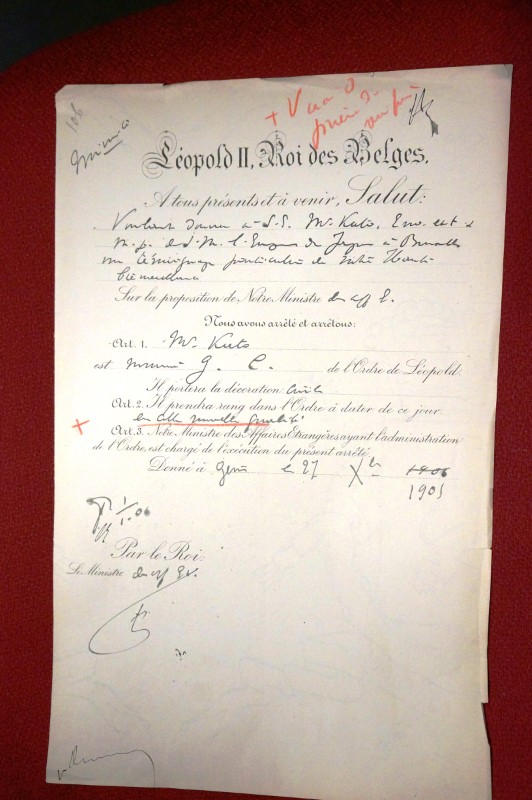 106
minute
+ Vu
Léopold II, Roi des Belges,
A tous présents et à venir, Salut:
Voulant donner à S.E. Mr Kato, Env. ext. &
M. p. de S. M. l'Empereur du Japon à Bruxelles
un témoignage particulier de Notre Haute
bienveillance
Sur la proposition de Notre Ministre des aff E.
Nous avons arrêté et arrêtons:
Art. 1. Mr Kato
est nommé G. C. de l'Ordre de Léopold.
Il portera la décoration civile
Art. 2. Il prendra rang dans l'Ordre à dater de ce jour
en cette nouvelle qualité
+ Art. 3. Notre Ministre des Affaires Etrangères ayant l'administration
de l'Ordre, est chargé de l'exécution du présent arrêté.
Donné à le 27 Xbre 1906
1905
1/1.06
Par le Roi:
Le Ministre des aff Ex.